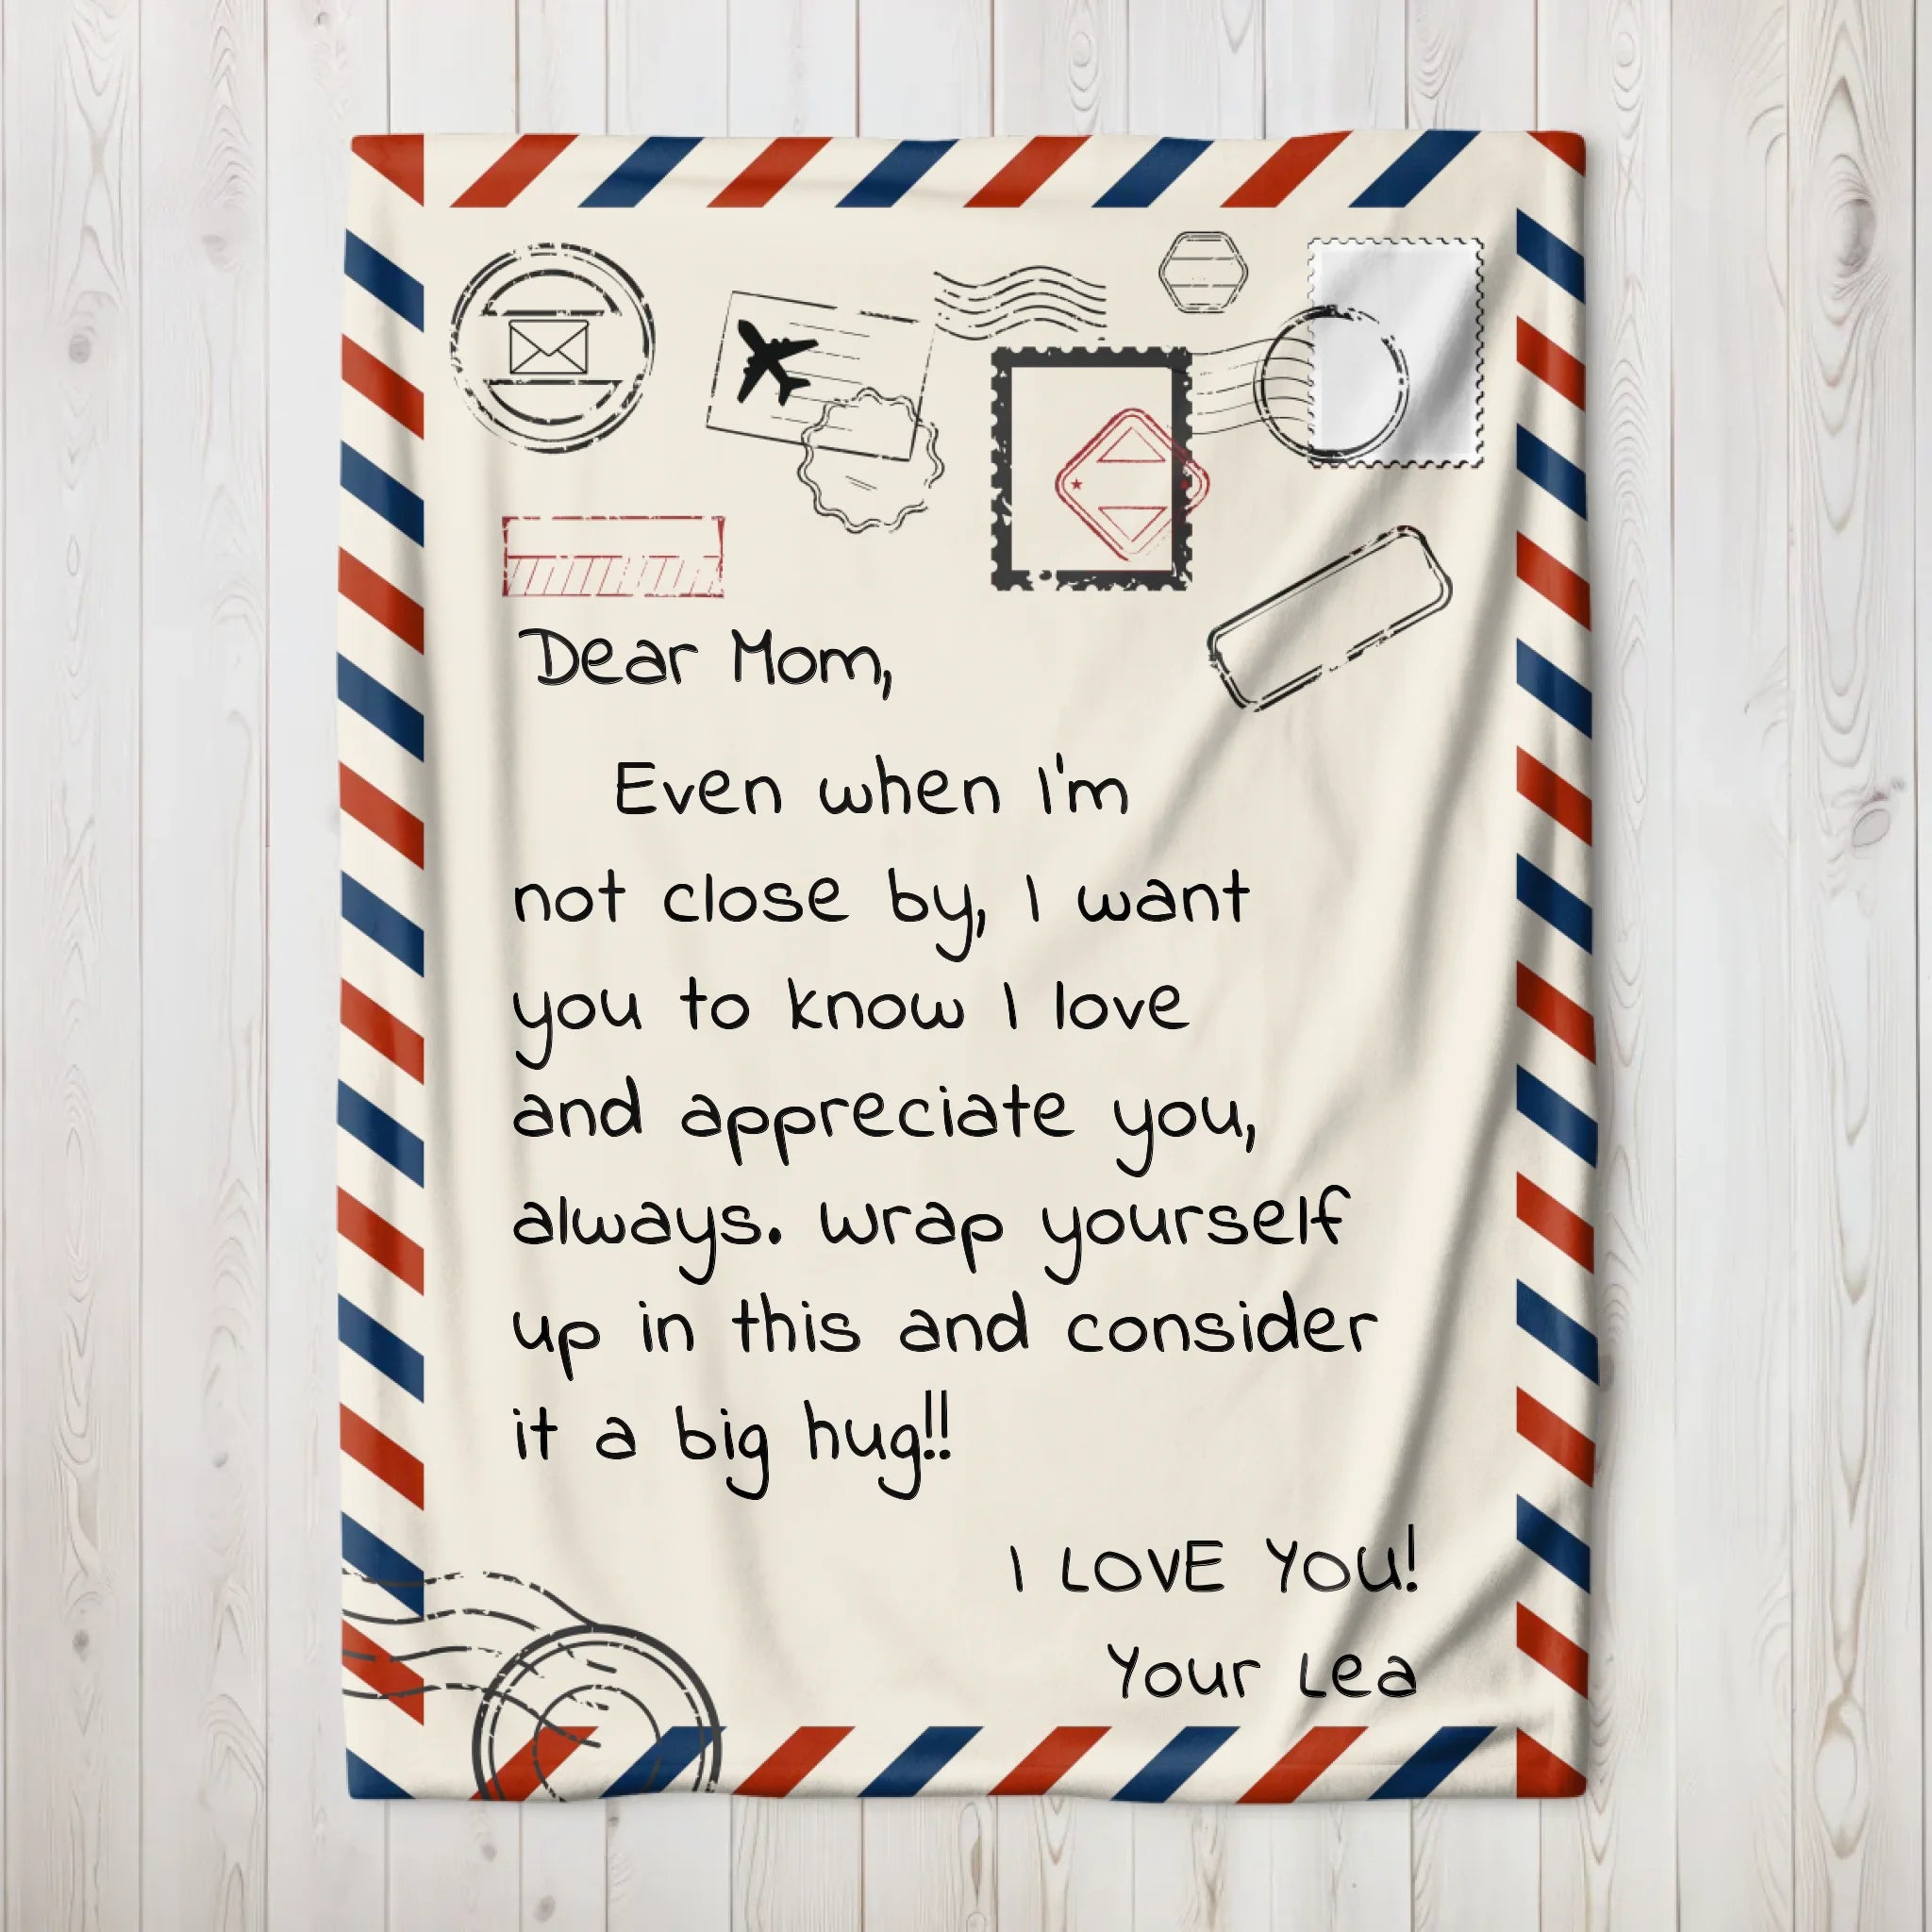 Dear Mom,
Even when I'm
not close by, I want
you to know I love
and appreciate you,
always. Wrap yourself
up in this and consider
it a big hug!!
I LOVE YOU!
Your Lea